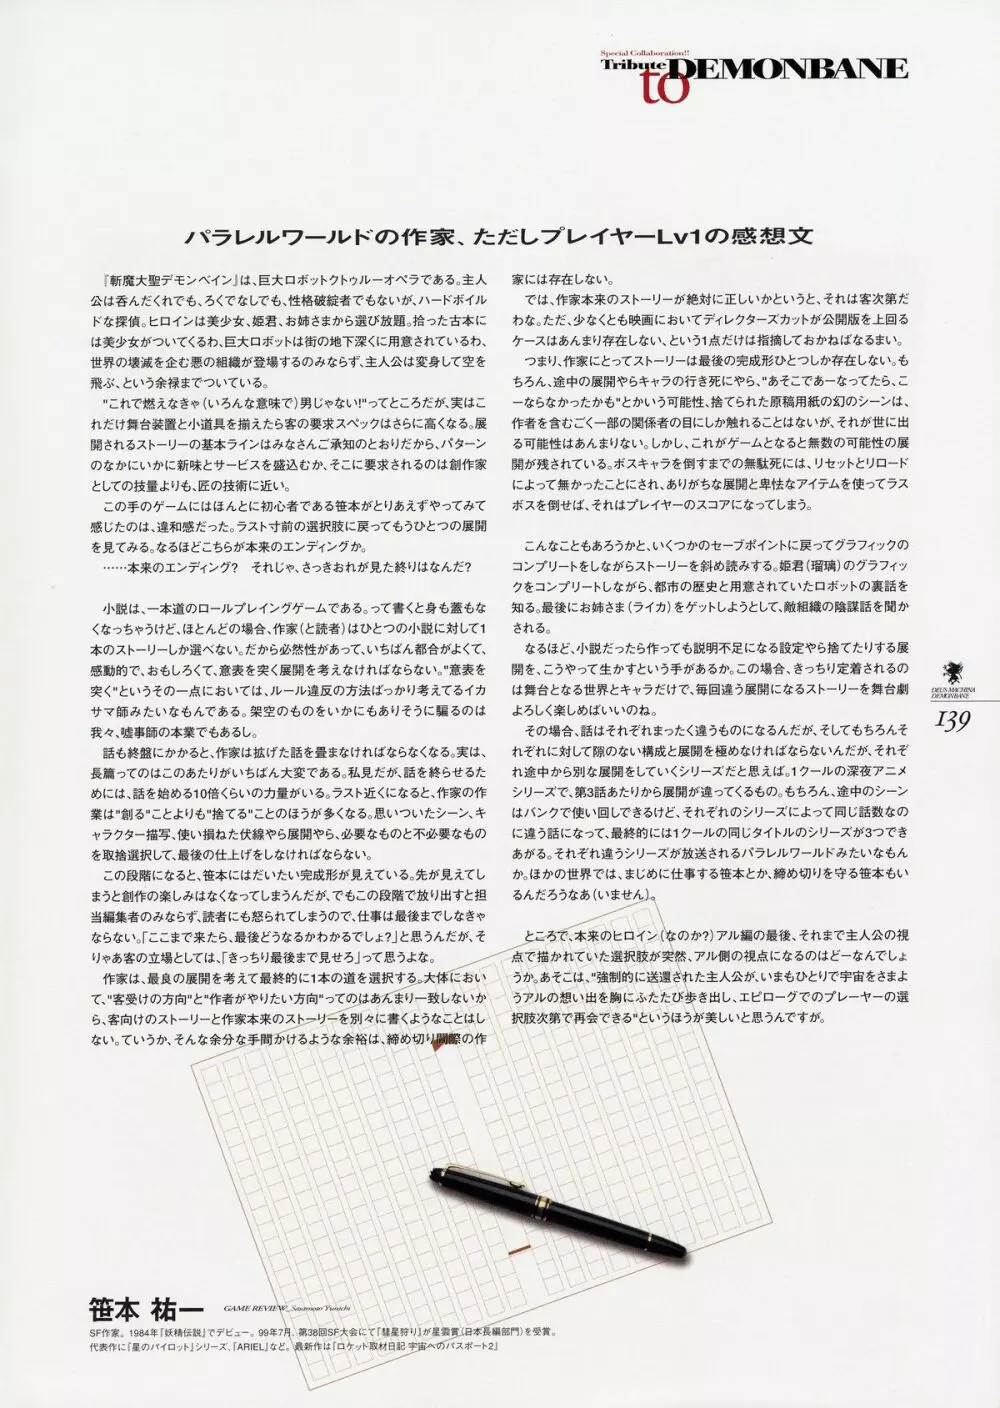 Special Collaboration!!
Tribute to DEMONBANE
パラレルワールドの作家、ただしプレイヤーLv1の感想文
『斬魔大聖デモンベイン』は、巨大ロボットクトゥルーオペラである。主人
公は呑んだくれでも、ろくでなしでも、性格破綻者でもないが、ハードボイル
ドな探偵。ヒロインは美少女、姫君、お姉さまから選び放題。拾った古本に
は美少女がついてくるわ、巨大ロボットは街の地下深くに用意されているわ、
世界の壊滅を企む悪の組織が登場するのみならず、主人公は変身して空を
飛ぶ、という余禄までついている。
"これで燃えなきゃ（いろんな意味で）男じゃない!"ってところだが、実はこ
れだけ舞台装置と小道具を揃えたら客の要求スペックはさらに高くなる。展
開されるストーリーの基本ラインはみなさんご承知のとおりだから、パターン
のなかにいかに新味とサービスを盛込むか、そこに要求されるのは創作家
としての技量よりも、匠の技術に近い。
この手のゲームにはほんとに初心者である笹本がとりあえずやってみて
感じたのは、違和感だった。ラスト寸前の選択肢に戻ってもうひとつの展開
を見てみる。なるほどこちらが本来のエンディングか。
……本来のエンディング?　それじゃ、さっきおれが見た終りはなんだ?
小説は、一本道のロールプレイングゲームである。って書くと身も蓋もな
くなっちゃうけど、ほとんどの場合、作家（と読者）はひとつの小説に対して1
本のストーリーしか選べない。だから必然性があって、いちばん都合がよくて、
感動的で、おもしろくて、意表を突く展開を考えなければならない。"意表を
突く"というその一点においては、ルール違反の方法ばっかり考えてるイカ
サマ師みたいなもんである。架空のものをいかにもありそうに騙るのは
我々、嘘事師の本業でもあるし。
話も終盤にかかると、作家は拡げた話を畳まなければならなくなる。実は、
長篇ってのはこのあたりがいちばん大変である。私見だが、話を終らせるた
めには、話を始める10倍くらいの力量がいる。ラスト近くになると、作家の作
業は"創る"ことよりも"捨てる"ことのほうが多くなる。思いついたシーン、キ
ャラクター描写、使い損ねた伏線やら展開やら、必要なものと不必要なもの
を取捨選択して、最後の仕上げをしなければならない。
この段階になると、笹本にはだいたい完成形が見えている。先が見えてし
まうと創作の楽しみはなくなってしまうんだが、でもこの段階で放り出すと担
当編集者のみならず、読者にも怒られてしまうので、仕事は最後までしなきゃ
ならない。「ここまで来たら、最後どうなるかわかるでしょ?」と思うんだが、そ
りゃあ客の立場としては、「きっちり最後まで見せろ」って思うよな。
作家は、最良の展開を考えて最終的に1本の道を選択する。大体におい
て、"客受けの方向"と"作者がやりたい方向"ってのはあんまり一致しないか
ら、客向けのストーリーと作家本来のストーリーを別々に書くようなことはし
ない。ていうか、そんな余分な手間かけるような余裕は、締め切り間際の作
家には存在しない。
では、作家本来のストーリーが絶対に正しいかというと、それは客次第だ
わな。ただ、少なくとも映画においてディレクターズカットが公開版を上回る
ケースはあんまり存在しない、という1点だけは指摘しておかねばなるまい。
つまり、作家にとってストーリーは最後の完成形ひとつしか存在しない。も
ちろん、途中の展開やらキャラの行き死にやら、"あそこであーなってたら、こ
ーならなかったかも"とかいう可能性、捨てられた原稿用紙の幻のシーンは、
作者を含むごく一部の関係者の目にしか触れることはないが、それが世に出
る可能性はあんまりない。しかし、これがゲームとなると無数の可能性の展
開が残されている。ボスキャラを倒すまでの無駄死には、リセットとリロード
によって無かったことにされ、ありがちな展開と卑怯なアイテムを使ってラス
ボスを倒せば、それはプレイヤーのスコアになってしまう。
こんなこともあろうかと、いくつかのセーブポイントに戻ってグラフィックの
コンプリートをしながらストーリーを斜め読みする。姫君（瑠璃）のグラフィッ
クをコンプリートしながら、都市の歴史と用意されていたロボットの裏話を
知る。最後にお姉さま（ライカ）をゲットしようとして、敵組織の陰謀話を聞か
される。
なるほど、小説だったら作っても説明不足になる設定やら捨てたりする展
開を、こうやって生かすという手があるか。この場合、きっちり定着されるの
は舞台となる世界とキャラだけで、毎回違う展開になるストーリーを舞台劇
よろしく楽しめばいいのね。
その場合、話はそれぞれまったく違うものになるんだが、そしてもちろんそ
れぞれに対して隙のない構成と展開を極めなければならないんだが、それぞ
れ途中から別な展開をしていくシリーズだと思えば。1クールの深夜アニメ
シリーズで、第3話あたりから展開が違ってくるもの。もちろん、途中のシーン
はバンクで使い回しできるけど、それぞれのシリーズによって同じ話数なの
に違う話になって、最終的には1クールの同じタイトルのシリーズが3つでき
あがる。それぞれ違うシリーズが放送されるパラレルワールドみたいなもん
か。ほかの世界では、まじめに仕事する笹本とか、締め切りを守る笹本もい
るんだろうなあ（いません）。
ところで、本来のヒロイン（なのか?）アル編の最後、それまで主人公の視
点で描かれていた選択肢が突然、アル側の視点になるのはどーなんでしょ
うか。あそこは、"強制的に送還された主人公が、いまもひとりで宇宙をさまよ
うアルの想い出を胸にふたたび歩き出し、エピローグでのプレーヤーの選
択肢次第で再会できる"というほうが美しいと思うんですが。
DEUS MACHINA
DEMONBANE
139
笹本 祐一　GAME REVIEW_Sasamoto Yuuichi
SF作家。1984年『妖精伝説』でデビュー。99年7月、第38回SF大会にて『彗星狩り』が星雲賞（日本長編部門）を受賞。
代表作に『星のパイロット』シリーズ、『ARIEL』など。最新作は『ロケット取材日記 宇宙へのパスポート2』